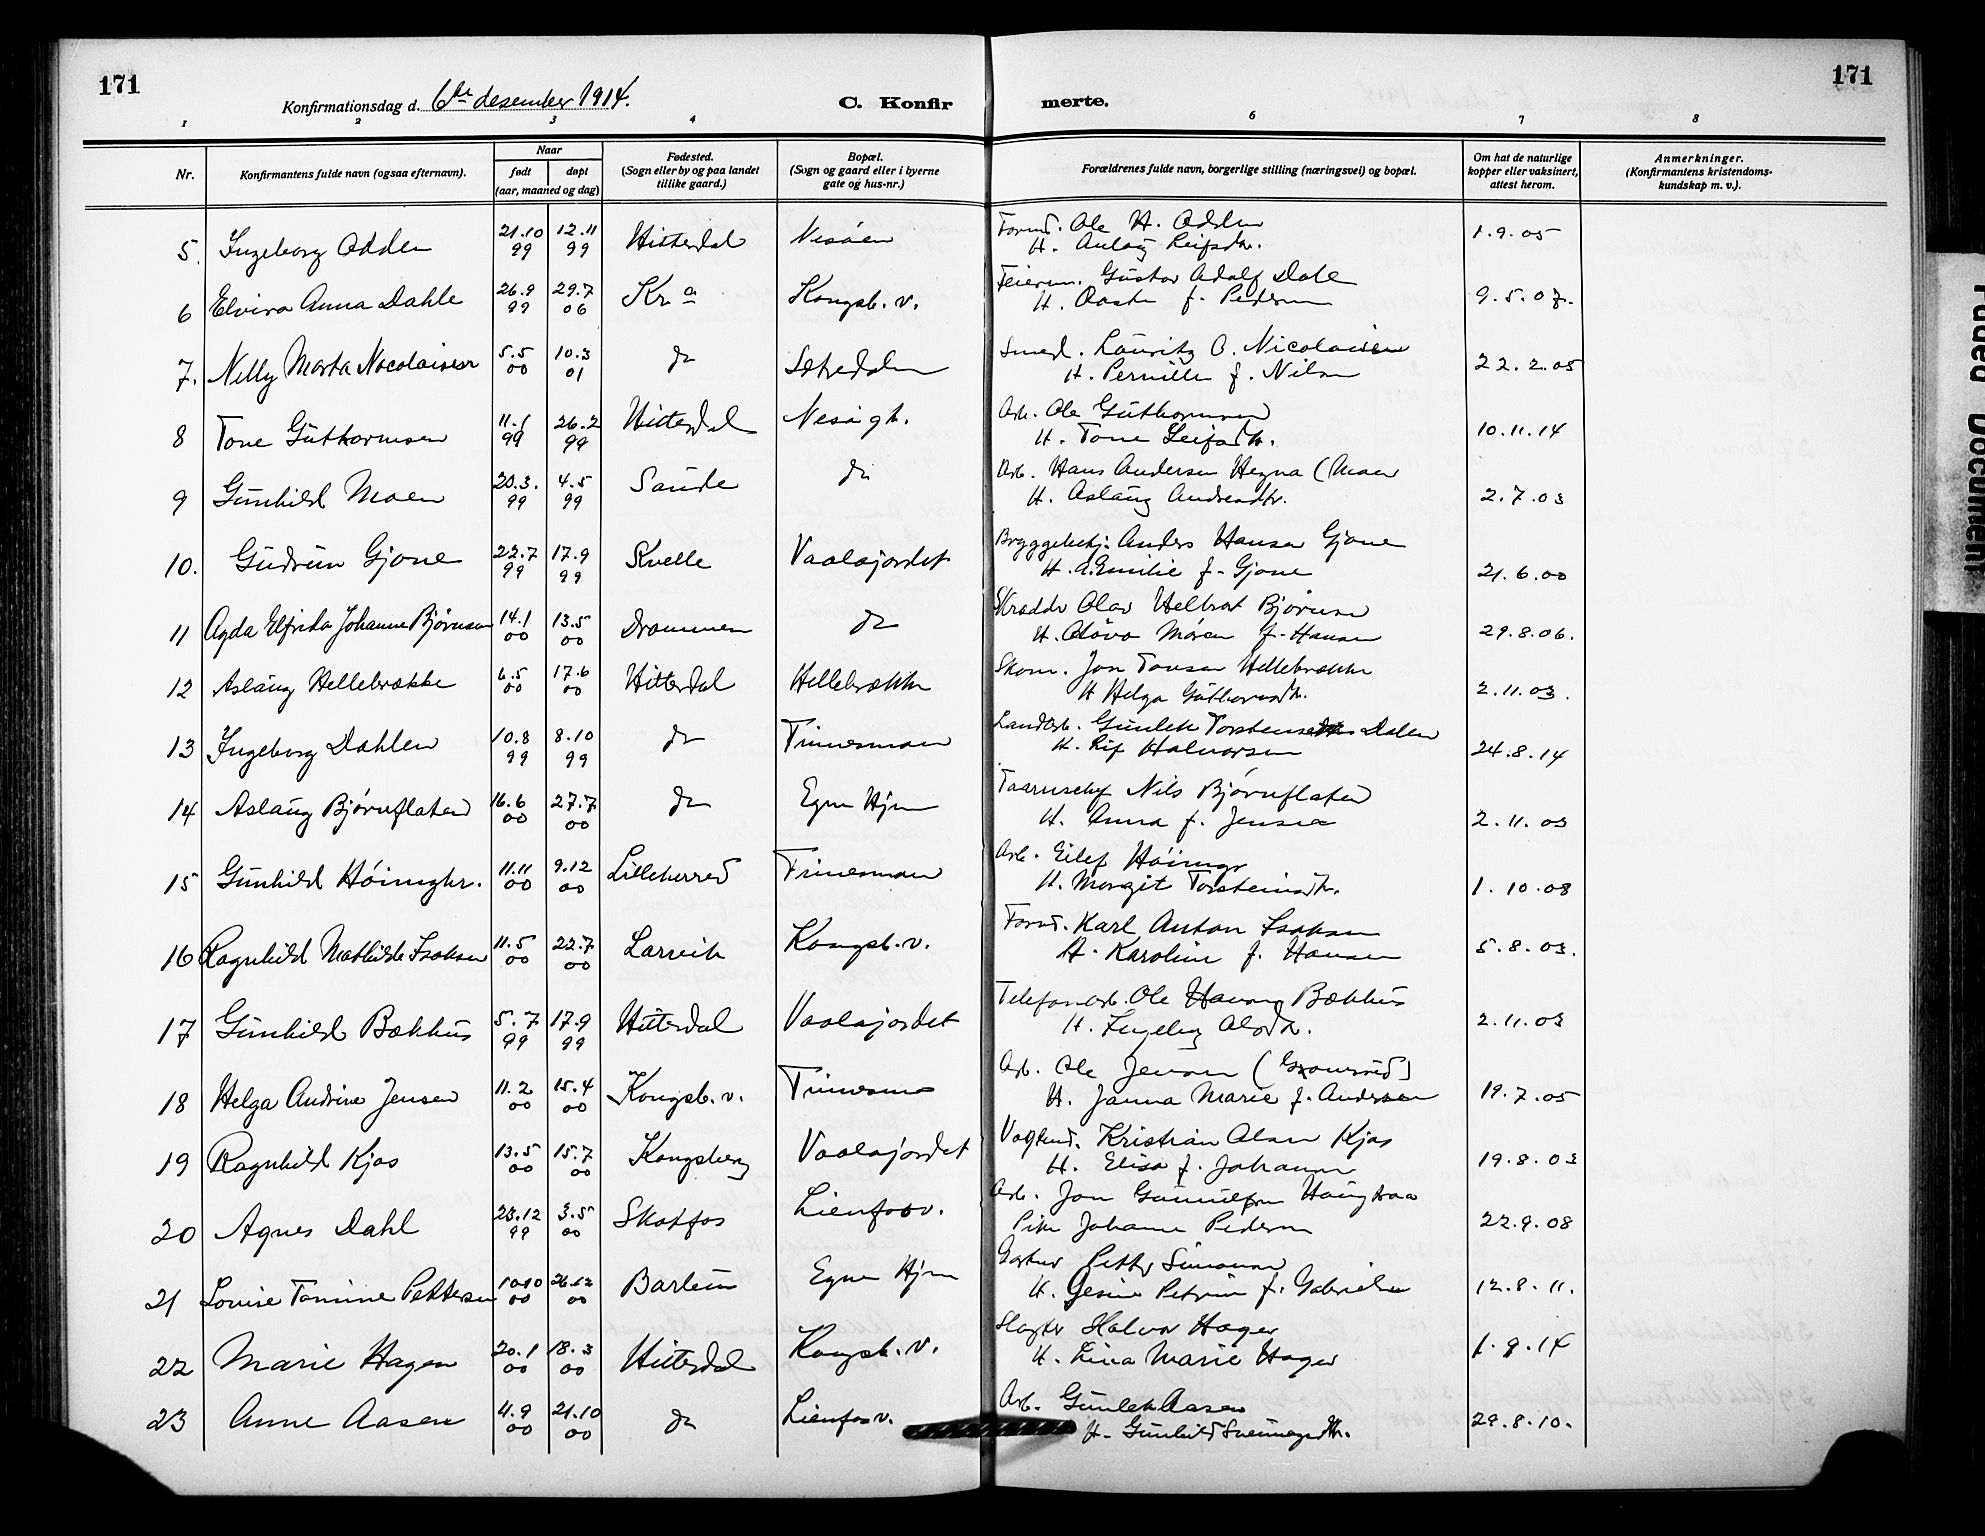 171
171
Konfirmationsdag d. 6te desember 1914.
C. Konfirmerte.
1 2 3 4 5 6 7 8
Nr.
Konfirmantens fulde navn (ogsaa efternavn).
Naar
født døpt
(aar, maaned og dag)
Fødested.
(Sogn eller by og paa landet
tillike gaard.)
Bopæl.
(Sogn og gaard eller i byerne
gate og hus-nr.)
Forældrenes fulde navn, borgerlige stilling (næringsvei) og bopæl.
Om hat de naturlige
kopper eller vaksinert,
attest herom.
Anmerkninger.
(Konfirmantens kristendoms-
kundskap m. v.).
5. Ingeborg Odden 21.10 99 12.11 99 Hitterdal Nesøen Formd. Ole H. Odden 1.9.05
H. Aulaug Leifsdtr.
6 Elvira Anna Dahle 26.9 99 29.7 06 Kr.a Kongsb. v. Feierm. Gustav Adolf Dale 9.5.07.
H. Aaste f. Pedersen
7. Nelly Marta Nocolaisen 5.5 00 10.3 01 do Sætredalen Smed. Lauritz O. Nicolaisen 22.2.05
H. Pernille f. Nilsen
8 Tone Guthormsen 11.1 99 26.2 99 Hitterdal Nesøgt. Arb. Ole Guthormsen 10.11.14
H. Tone Leifsdtr.
9 Gunhild Moen 20.3. 99 4.5 99 Saude do Arb. Hans Andersen Hegna (Moen 2.7.03
H. Aslaug Andreasdtr.
10. Gudrun Gjone 22.7 99 17.9 99 Kvelle Vaalajordet Bryggebetj. Anders Hansen Gjone 21.6.00
H. A. Emilie f. Gjone
11 Agda Elfrida Johanne Bjørnsen 14.1 00 13.5 00 Drammen do Skrædder Olav Bjørnsen 29.8.06.
H. f. Hansen
12 Aslaug Hellebrække 6.5 00 17.6 00 Hitterdal Hellebrække Skom. Jon Tovsen Hellebrække 2.11.03.
H Helga Guthormsdtr.
13 Ingeborg Dahlen 10.8 99 8.10 99 do Tinnesmoen Landarb. Gunlek Torstensen Dalen 24.8.14
H. Liv Halvorsen
14 Aslaug Bjørnflaten 16.6 00 27.7 00 do Egne Hjem Nils Bjørnflaten 2.11.03
H. Anna f. Jensen
15 Gunhild Höimyhr. 11.11 00 9.12 00 Lilleherred Tinnesmoen Arb. Eilef Höimyr 1.10.08
H. Margit Torsteinsdtr.
16 Ragnhild Mathilde Isaksen 11.5 00 22.7 00 Larvik Kongsb. v. Formd. Karl Anton Isaksen 5.8.03.
H. Karoline f. Hansen
17 Gunhild Bækhus 5.7 99 17.9 99 Hitterdal Vaalajordet Telefonarb. Ole Hansen Bækhus 2.11.03
H. Ingeborg Olavsdtr.
18 Helga Andrine Jensen 11.2 00 15.4 00 Kongsb. v. Tinnesmo Arb. Ole Jensen 19.7.05
H. Janna Marie f. Andersen
19 Ragnhild Kjos 13.5 00 15.7 00 Kongsberg Vaalajordet Vogtmd. Kristian Olsen Kjos 19.8.03
H. Elise f. Johansen
20 Agnes Dahl 23.12 99 3.5 00 Skotfos Lienfosv. Arb. Jon Gunnulfsen Haugtraa 22.9.08
Pike Johanne Pedersen
21 Louise Tomine Pettersen 10.10 00 26.12 00 Barteim Egne Hjem Gartner Petter Simonsen 12.8.11.
H. Gesine Petrine f. Gabrielsen
22 Marie Hagen 20.1 00 18.3 00 Hitterdal Kongsb. v. Slagter Halvor Hagen 1.9.14
H. Lina Marie Hagen
23 Anne Aasen 4.9 00 21.10 00 do Lienfosv. Arb. Gunlek Aasen 29.8.10.
H. Gunhild Sveinungsdtr.